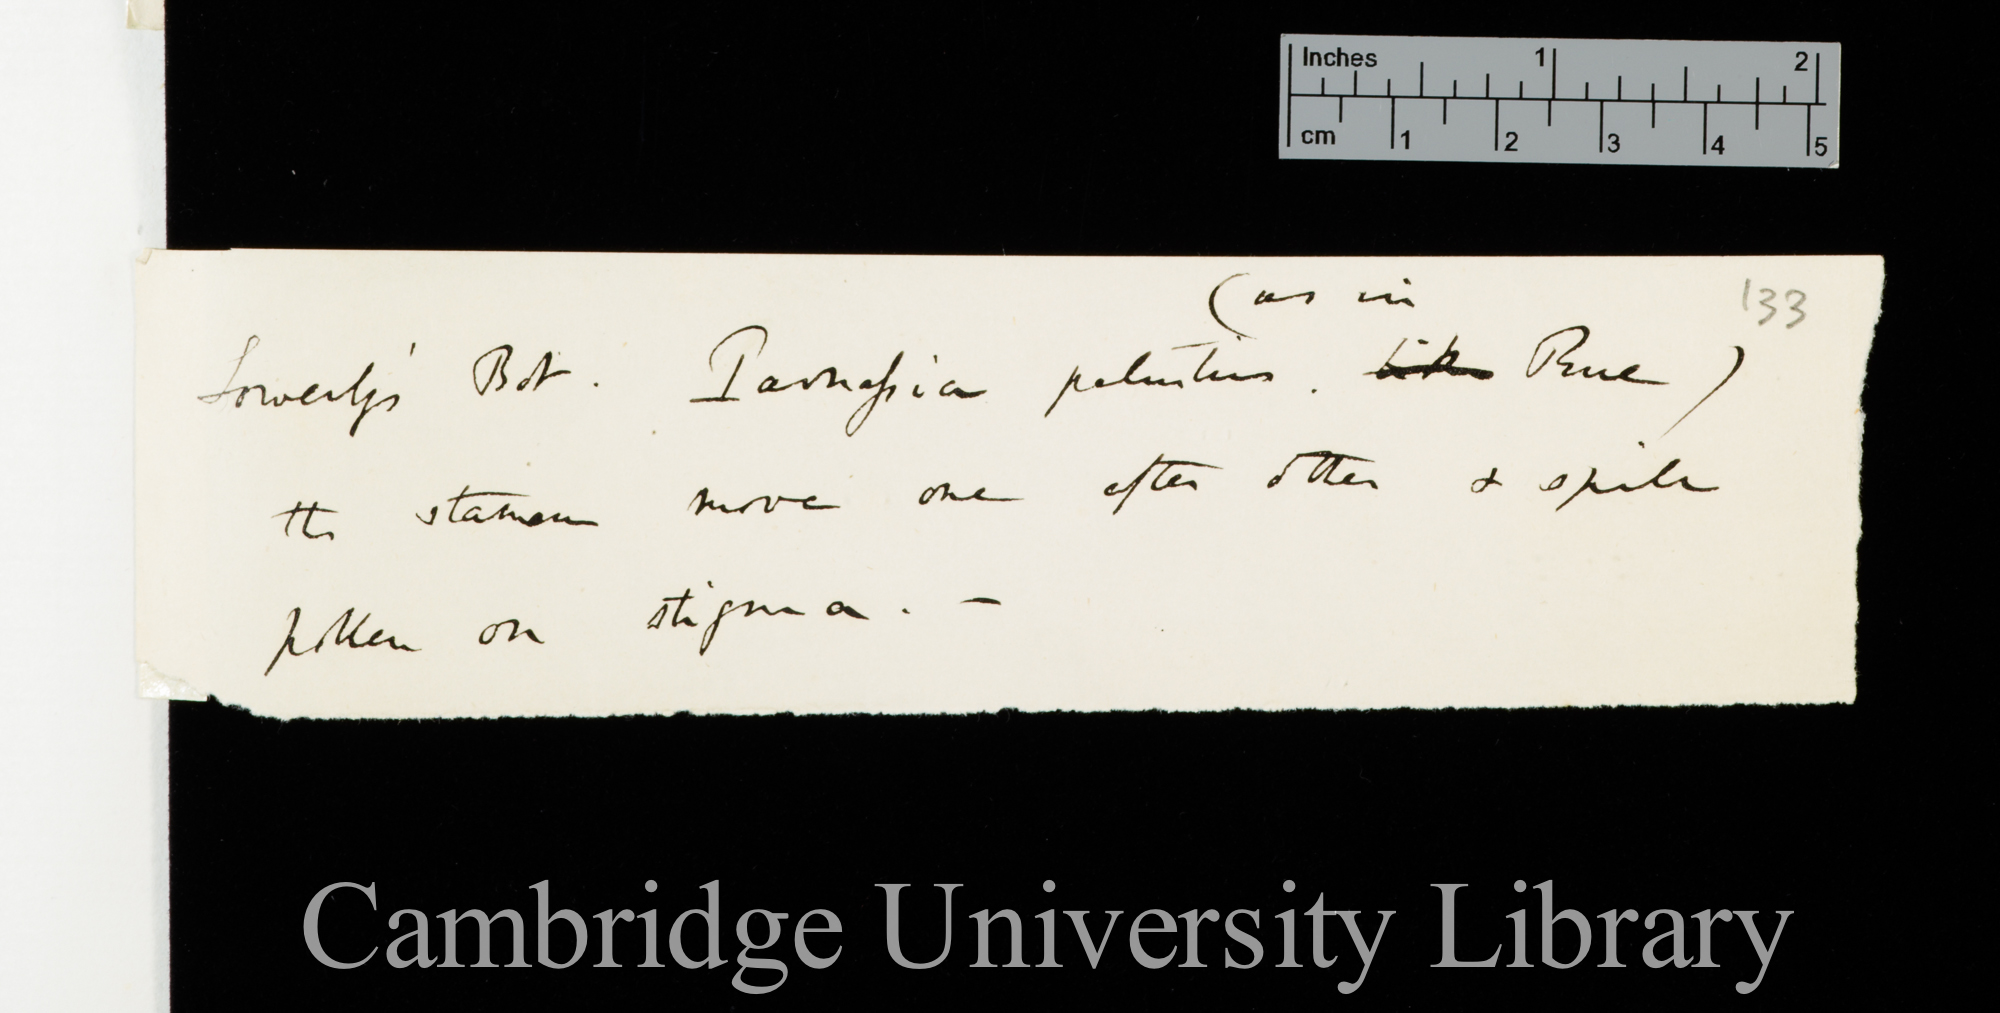 Inches 1 2
cm 1 2 3 4 5
(as in
133
Sowerby's Bot. Parnassia palustris. like Rue)
the stamen move one after other & spile
pollen on stigma. —
Cambridge University Library